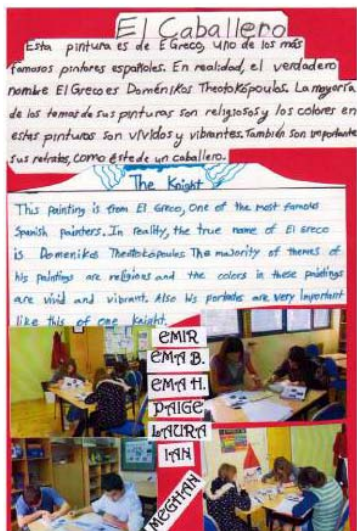 El Caballero
Esta pintura es de El Greco, uno de los más
famosos pintores españoles. En realidad, el verdadero
nombre El Greco es Doménikos Theotokópoulos. La mayoría
de los temas de sus pinturas son religiosos y los colores en
estas pinturas son vívidos y vibrantes. También son importantes
sus retratos, como éste de un caballero.
The Knight
This painting is from El Greco, One of the most famous
Spanish painters. In reality, the true name of El Greco
is Domenikos Theotokopoulos The majority of themes of
his paintings are religious and the colors in these paintings
are vivid and vibrant. Also his portraits are very important
like this of one knight.
EMIR
EMA B.
EMA H.
PAIGE
LAURA
IAN
MEGHAN